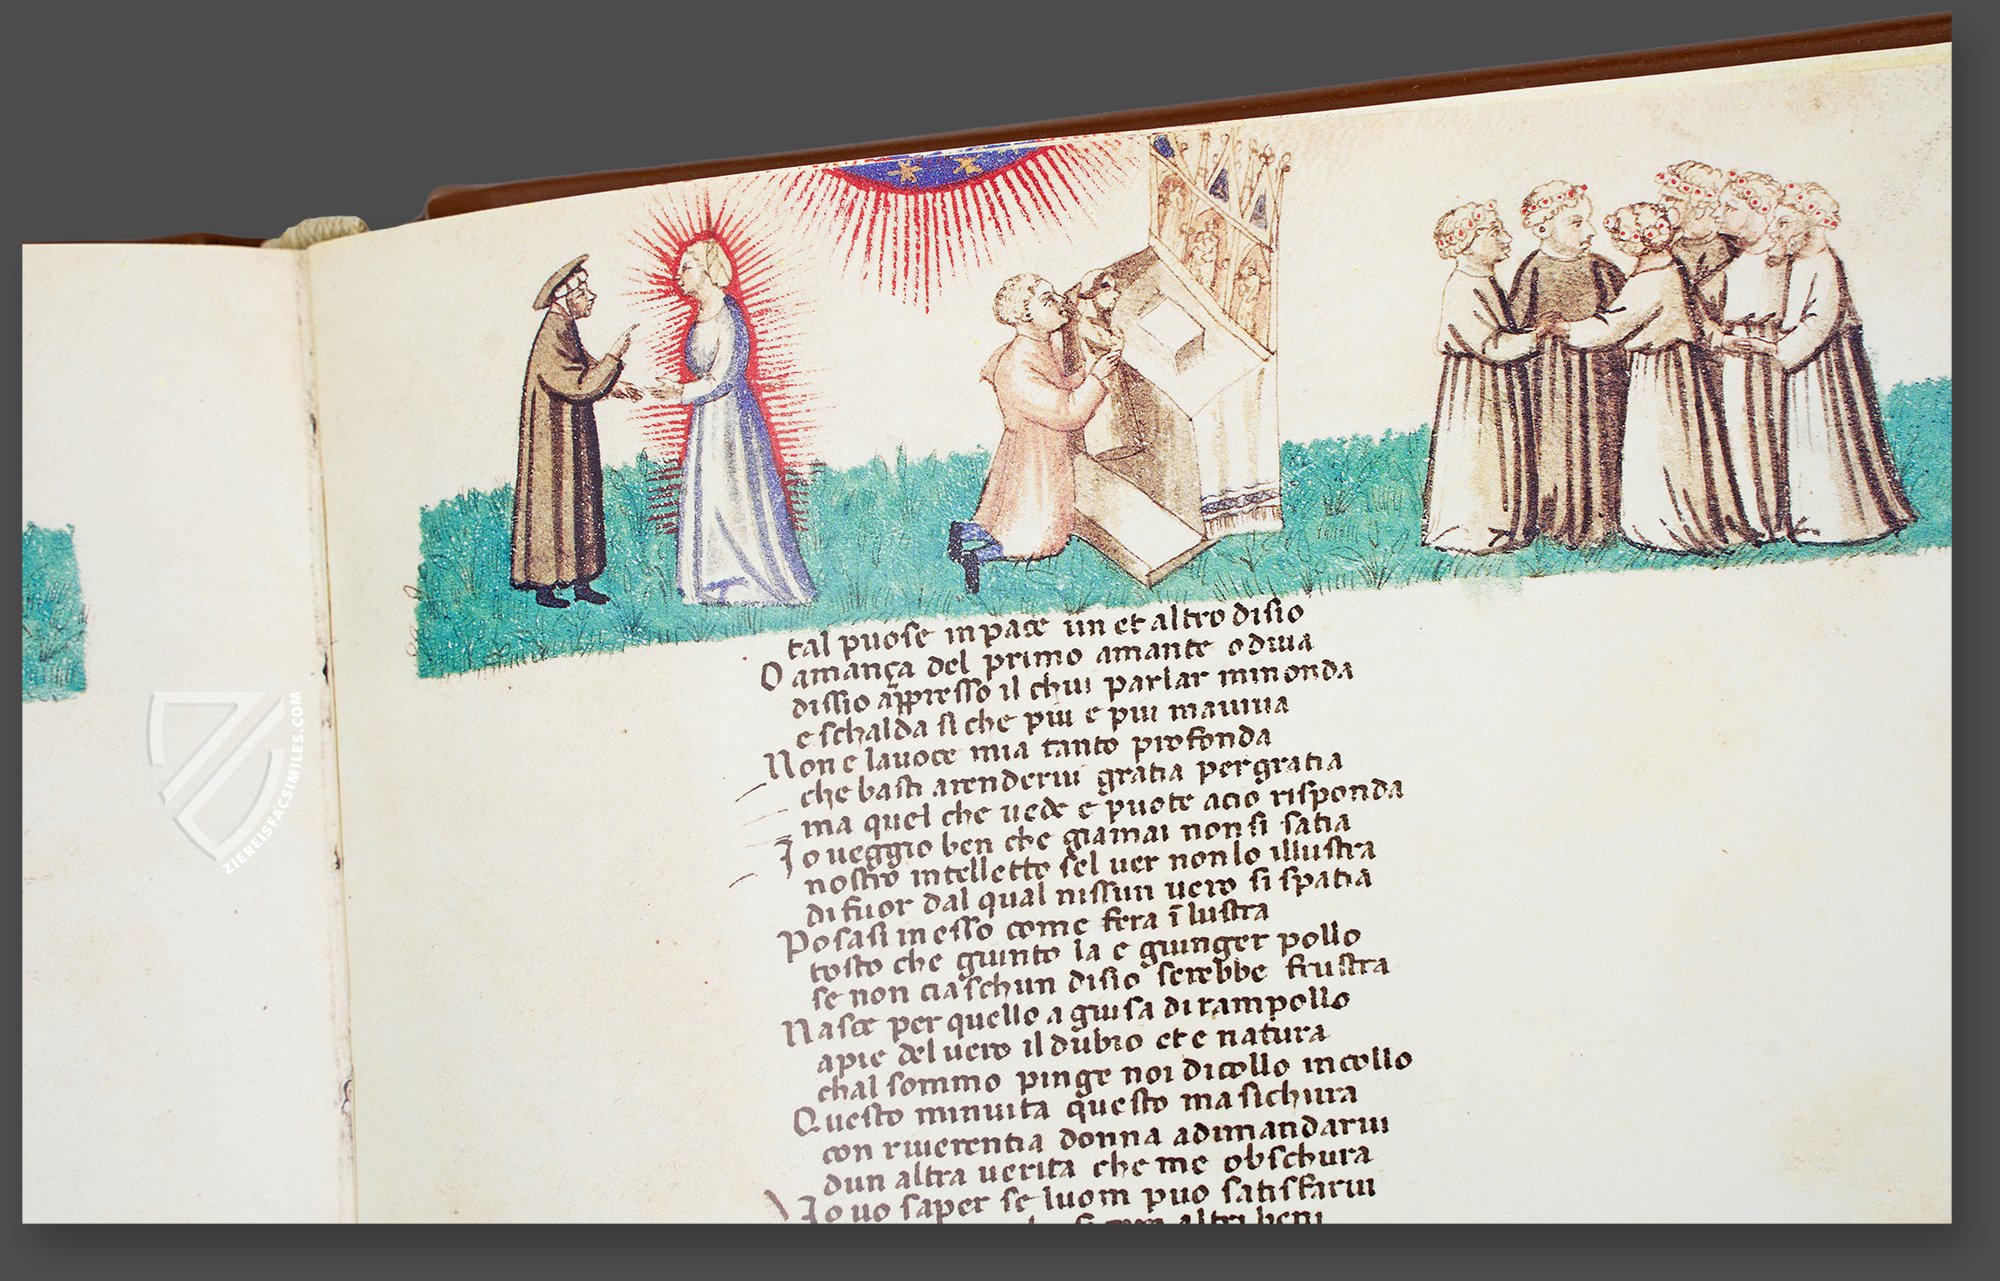 tal puose in pace un et altro disio
O amança del primo amante o diua
dissio appresso il chui parlar minonda
e schalda si che piu e piu mauiua
Non e lauoce mia tanto profonda
che basti arenderui gratia per gratia
ma quel che uede e puote acio risponda
Io ueggio ben che giamai non si satia
nostro intelletto sel uer non lo illustra
di fuor dal qual nissun uero si spatia
Posasi in esso come fera ī lustra
tosto che giunto la e giunger pollo
se non ciaschun disio serebbe frustra
Nasce per quello a guisa di rampollo
apie del uero il dubio et e natura
chal sommo pinge noi di collo in collo
Questo minuita questo masichura
con riuerentia donna adimandarui
dun altra uerita che me obschura
Io uo saper se luom puo satisfarui
altri beni
ZIEREISFACSIMILES.COM